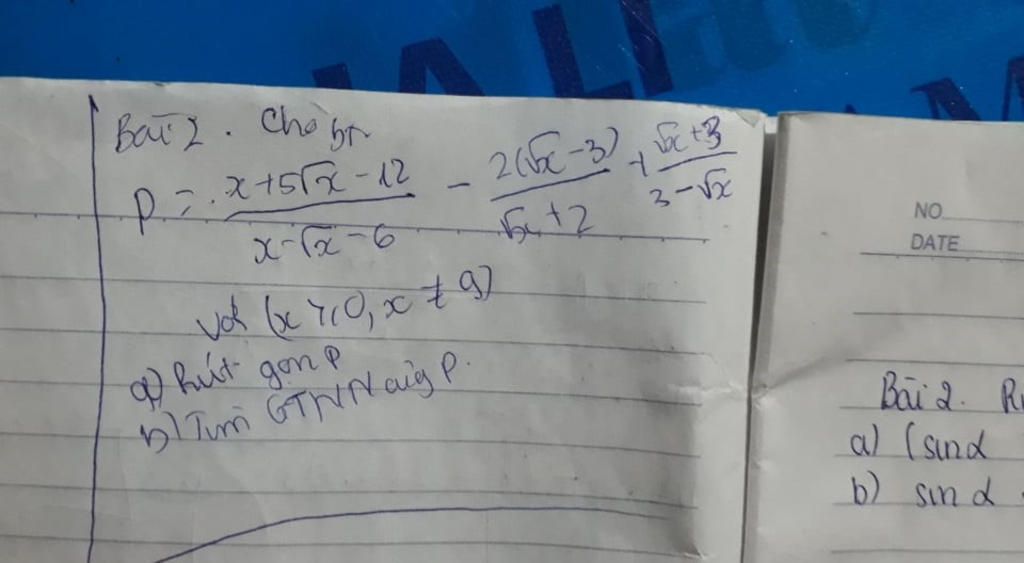 Bài 2. Cho bt
P = x+5√x-12 / x-√x-6 - 2(√x-3) / √x+2 + √x+3 / 3-√x
với (x ≥ 0, x ≠ 9)
a) Rút gọn P
b) Tìm GTNN của P.
NO
DATE
Bài 2. R
a) (sin α
b) sin α